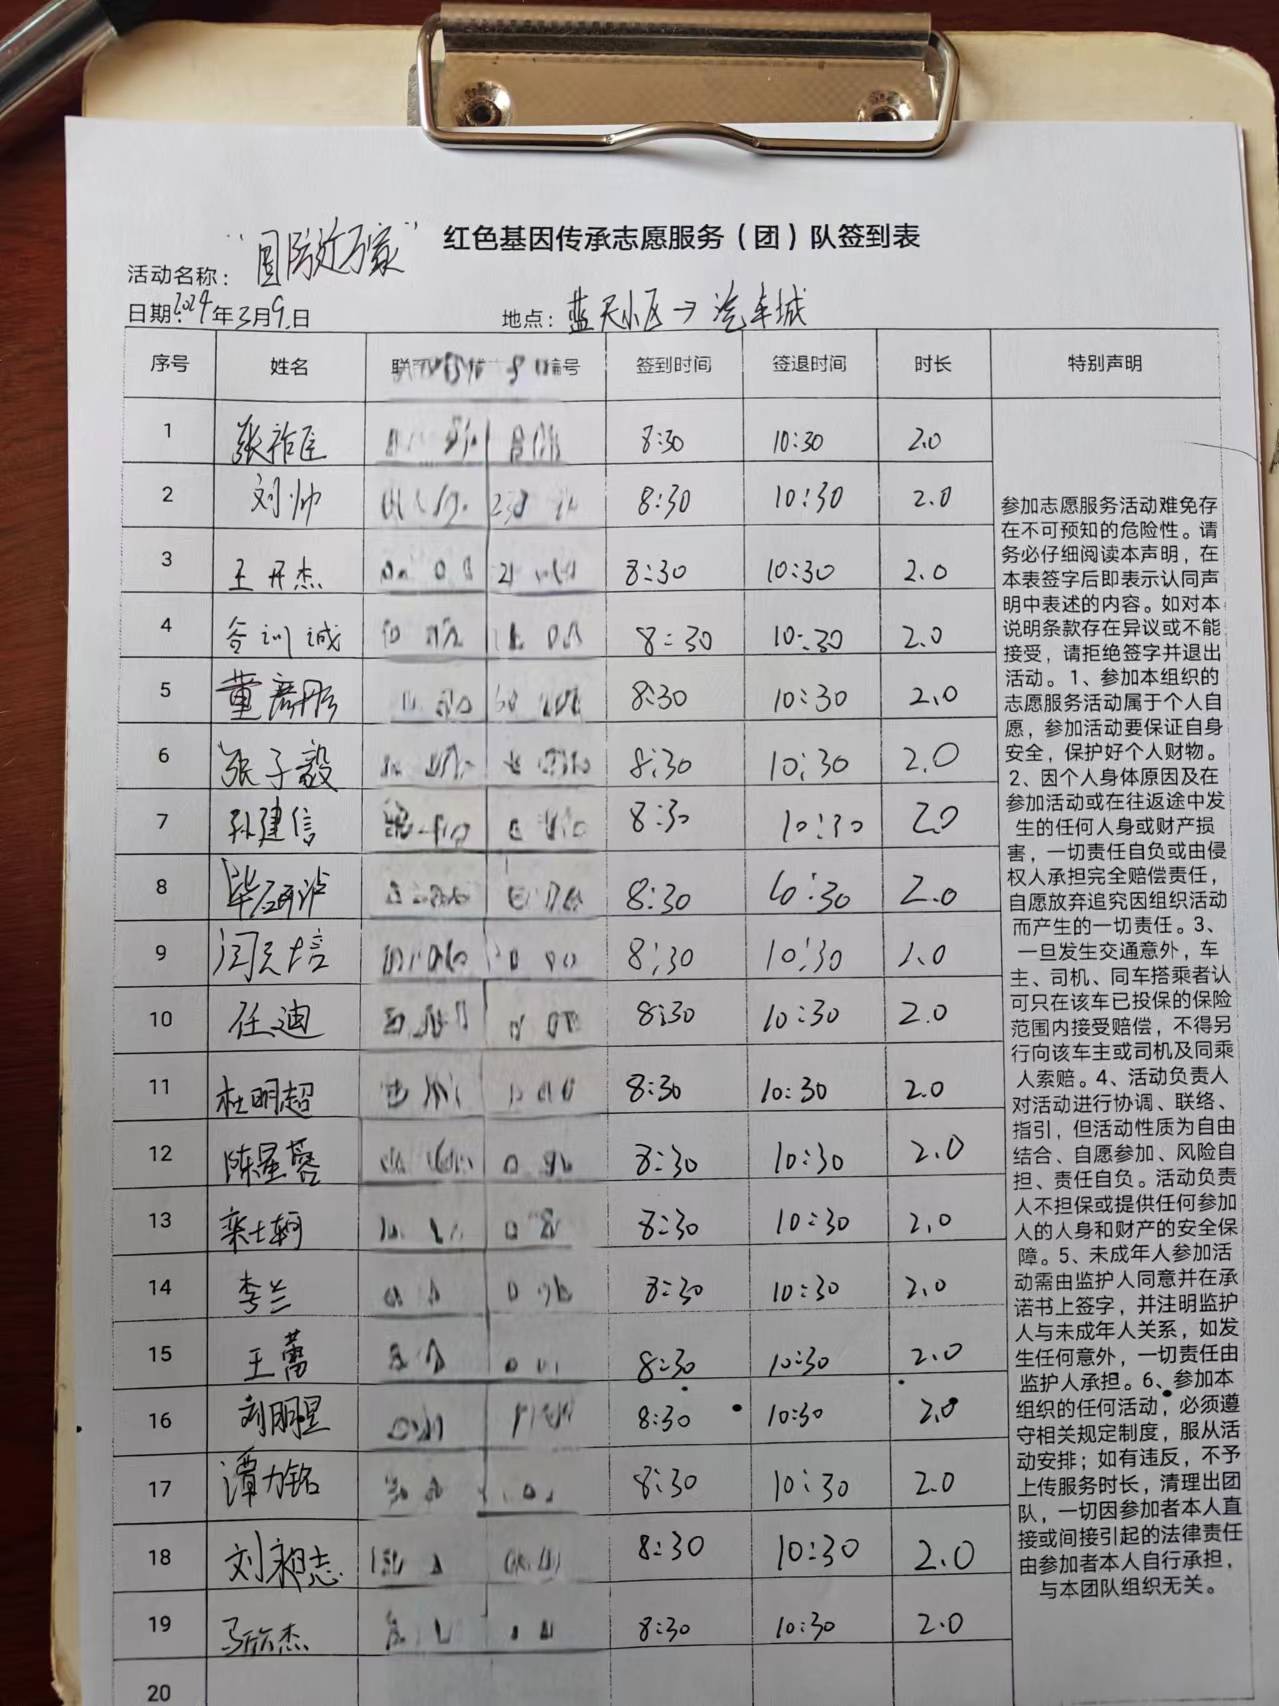 红色基因传承志愿服务（团）队签到表
活动名称： “国防进万家”
日期：2024年3月9日 地点：蓝天小区→汽车城
序号 姓名 号 签到时间 签退时间 时长 特别声明
1 8:30 10:30 2.0
2 刘帅 8:30 10:30 2.0
3 王开杰 8:30 10:30 2.0
4 训诚 8:30 10:30 2.0
5 董彦彤 8:30 10:30 2.0
6 张子毅 8:30 10:30 2.0
7 孙建信 8:30 10:30 2.0
8 8:30 10:30 2.0
9 闫天培 8:30 10:30 2.0
10 任迪 8:30 10:30 2.0
11 杜明超 8:30 10:30 2.0
12 陈星蓉 8:30 10:30 2.0
13 栾士轲 8:30 10:30 2.0
14 李兰 8:30 10:30 2.0
15 王蕾 8:30 10:30 2.0
16 刘明星 8:30 10:30 2.0
17 谭力铭 8:30 10:30 2.0
18 刘昶志 8:30 10:30 2.0
19 马欣杰 8:30 10:30 2.0
20
参加志愿服务活动难免存
在不可预知的危险性。请
务必仔细阅读本声明，在
本表签字后即表示认同声
明中表述的内容。如对本
说明条款存在异议或不能
接受，请拒绝签字并退出
活动。1、参加本组织的
志愿服务活动属于个人自
愿，参加活动要保证自身
安全，保护好个人财物。
2、因个人身体原因及在
参加活动或在往返途中发
生的任何人身或财产损
害，一切责任自负或由侵
权人承担完全赔偿责任，
自愿放弃追究因组织活动
而产生的一切责任。3、
一旦发生交通意外，车
主、司机、同车搭乘者认
可只在该车已投保的保险
范围内接受赔偿，不得另
行向该车主或司机及同乘
人索赔。4、活动负责人
对活动进行协调、联络、
指引，但活动性质为自由
结合、自愿参加、风险自
担、责任自负。活动负责
人不担保或提供任何参加
人的人身和财产的安全保
障。5、未成年人参加活
动需由监护人同意并在承
诺书上签字，并注明监护
人与未成年人关系，如发
生任何意外，一切责任由
监护人承担。6、参加本
组织的任何活动，必须遵
守相关规定制度，服从活
动安排；如有违反，不予
上传服务时长，清理出团
队，一切因参加者本人直
接或间接引起的法律责任
由参加者本人自行承担，
与本团队组织无关。